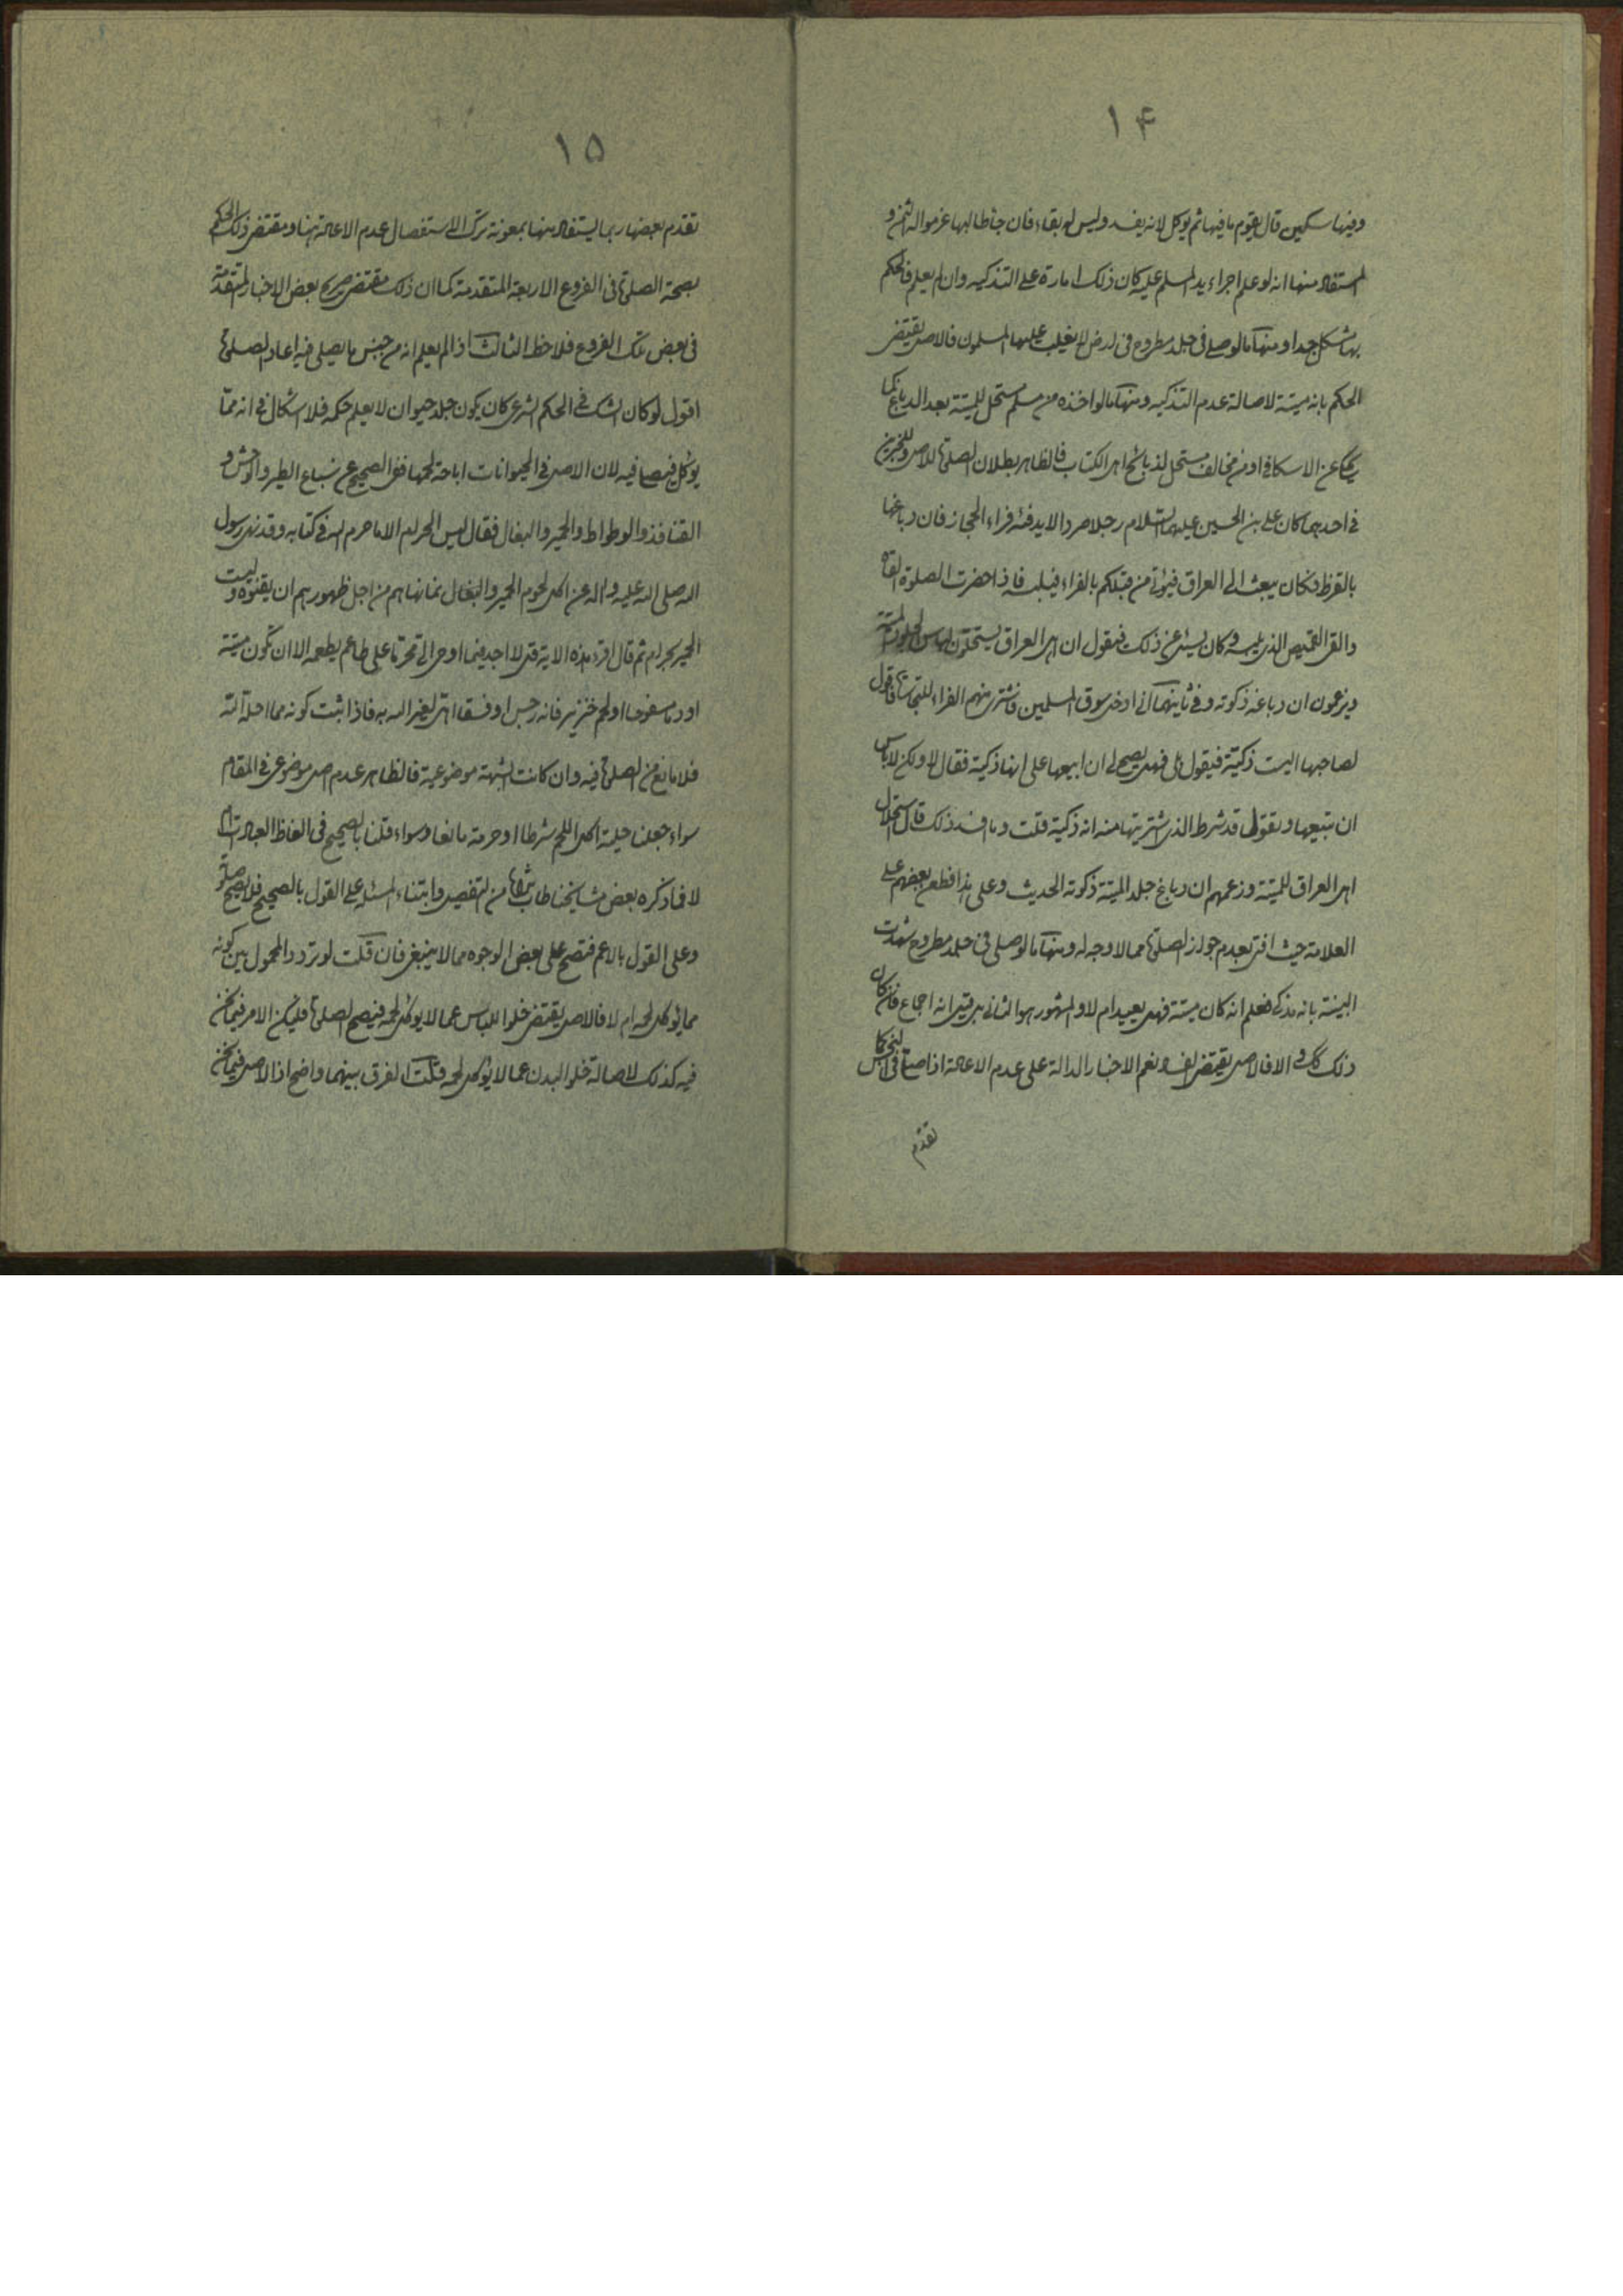 ١۴
وفيها سكين قال يقوم ما فيها ثم يؤكل لانه يفسد وليس له بقاء فان جاء طالبها غرموا له الثمن و
المستفاد منها انه لو علم اجراء يد المسلم عليه كان ذلك امارة على التذكيه وان لم يعلم فالحكم
بها مشكل جدا ومنها ما لو صلى في جلد مطروح في ارض لا يغلب عليها المسلمون فالاصل يقتضى
الحكم بانه ميتة لاصالة عدم التذكيه ومنها ما لو اخذه من مسلم مستحل للميتة بعد الدباغ كما
يحكى عن الاسكافى او من مخالف مستحل لذبائح اهل الكتاب فالظاهر بطلان الصلوة للاصل وللخبرين
في احدهما كان على بن الحسين عليهما السلام رجلا صردا لا يدفئه فراء الحجاز فان دباغها
بالقرظ فكان يبعث الى العراق فيؤتى من قبلكم بالفراء فيلبسه فاذا حضرت الصلوة القاه
والقى القميص الذى يليه وكان يسئل عن ذلك فيقول ان اهل العراق يستحلون لباس الجلود الميتة
ويزعمون ان دباغه ذكوته وفى ثانيهما انى ادخل سوق المسلمين فاشترى منهم الفراء للتجارة فاقول
لصاحبها اليست ذكية فيقول بلى فهل يصح لى ان ابيعها على انها ذكية فقال لا ولكن لا باس
ان تبيعها وتقول قد شرط الذى اشتريتها منه انه ذكية قلت وما افسد ذلك قال استحلال
اهل العراق للميتة وزعمهم ان دباغ جلد الميتة ذكوته الحديث وعلى هذا فطعن بعضهم على
العلامة حيث افتى بعدم جواز الصلوة مما لا وجه له ومنها ما لو صلى في جلد مطروح شهدت
البينة بانه مذكى فعلم انه كان ميتة فهل يعيد ام لا والمشهور هو الثانى بل قيل انه اجماع فان كان
ذلك كك والا فالاصل يقتضى الفساد نعم الاخبار الدالة على عدم الاعادة اذا صلى في النجس كما
تقدم
١۵
تقدم بعضها ربما يستفاد منها بمعونة ترك الاستفصال عدم الاعادة هنا ومقتضى ذلك الحكم
بصحة الصلوة فى الفروع الاربعة المتقدمة كما ان ذلك مقتضى صريح بعض الاخبار المتقدمة
فى بعض تلك الفروع فلاحظ الثالث اذا لم يعلم انه من جنس ما يصلى فيه اعاد الصلوة
اقول لو كان الشك فى الحكم الشرعى كان يكون جلد حيوان لا يعلم حكمه فلا اشكال فى انه مما
يؤكل فيصلى فيه لان الاصل فى الحيوانات اباحة لحمها ففى الصحيح عن سباع الطير والوحش و
القنافذ والوطواط والحمير والبغال فقال ليس الحرام الا ما حرم الله فى كتابه وقد نهى رسول
الله صلى الله عليه واله عن اكل لحوم الحمير والبغال نما نهاهم من اجل ظهورهم ان يفنوه وليست
الحمير بحرام ثم قال اقرء هذه الاية قل لا اجد فيما اوحى الى محرما على طاعم يطعمه الا ان تكون ميتة
او دما مسفوحا او لحم خنزير فانه رجس او فسقا اهل لغير الله به فاذا ثبت كونه مما احله الله
فلا مانع من الصلوة فيه وان كانت الشبهة موضوعية فالظاهر عدم اصل موضوعى فى المقام
سواء جعلنا حلية اكل اللحم شرطا او حرمة مانعا وسواء قلنا بالصحيح فى الفاظ العبادات ام
لا فما ذكره بعض مشايخنا طاب ثراه من التفصيل وابتناء المسئلة على القول بالصحيح فلا يصح صلوته
وعلى القول بالاعم فتصح على بعض الوجوه مما لا ينبغى فان قلت لو تردد المحمول بين كونه
مما يؤكل لحمه ام لا فالاصل يقتضى خلو اللباس عما لا يؤكل لحمه فيصح الصلوة فليكن الامر فيما نحن
فيه كذلك لاصالة خلو البدن عما لا يؤكل لحمه قلت الفرق بينهما واضح اذ الاصل فيما نحن